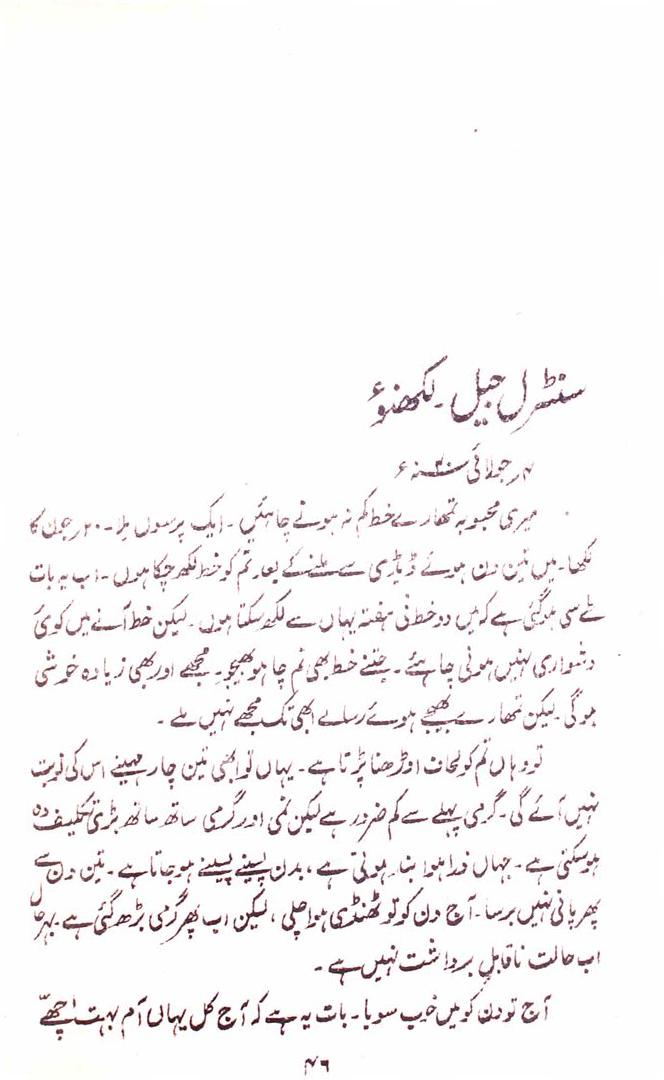 سنٹرل جیل۔ لکھنؤ
۴ر جولائی ۴۰ء
میری محبوبہ تمھارے خط کم نہ ہونے چاہئیں۔ ایک پرسوں ملا۔ ۲۰ر جون کا
لکھا۔ میں تین دن ہوئے ڈپاڑی سے ملنے کے بعد تم کو خط لکھ چکا ہوں۔ اب یہ بات
طے سی ہو گئی ہے کہ میں دو خط فی ہفتہ یہاں سے لکھ سکتا ہوں۔ لیکن خط آنے میں کوئی
دشواری نہیں ہونی چاہئے۔ جتنے خط بھی تم چاہو بھیجو۔ مجھے اور بھی زیادہ خوشی
ہو گی لیکن تمھارے بھیجے ہوئے رسالے ابھی تک مجھے نہیں ملے۔
تو وہاں تم کو لحاف اوڑھنا پڑتا ہے۔ یہاں تو ابھی تین چار مہینے اس کی نوبت
نہیں آئے گی۔ گرمی پہلے سے کم ضرور ہے لیکن نمی اور گرمی ساتھ ساتھ بڑی تکلیف دہ
ہو سکتی ہے۔ جہاں ذرا ہوا بند ہوتی ہے، بدن پسینے پسینے ہو جاتا ہے۔ تین دن سے
پھر پانی نہیں برسا۔ آج دن کو تو ٹھنڈی ہوا چلی، لیکن اب پھر گرمی بڑھ گئی ہے۔ بہرحال
اب حالت ناقابلِ برداشت نہیں ہے۔
آج تو دن کو میں خوب سویا۔ بات یہ ہے کہ آج کل یہاں آم بہت اچھے
۴۶